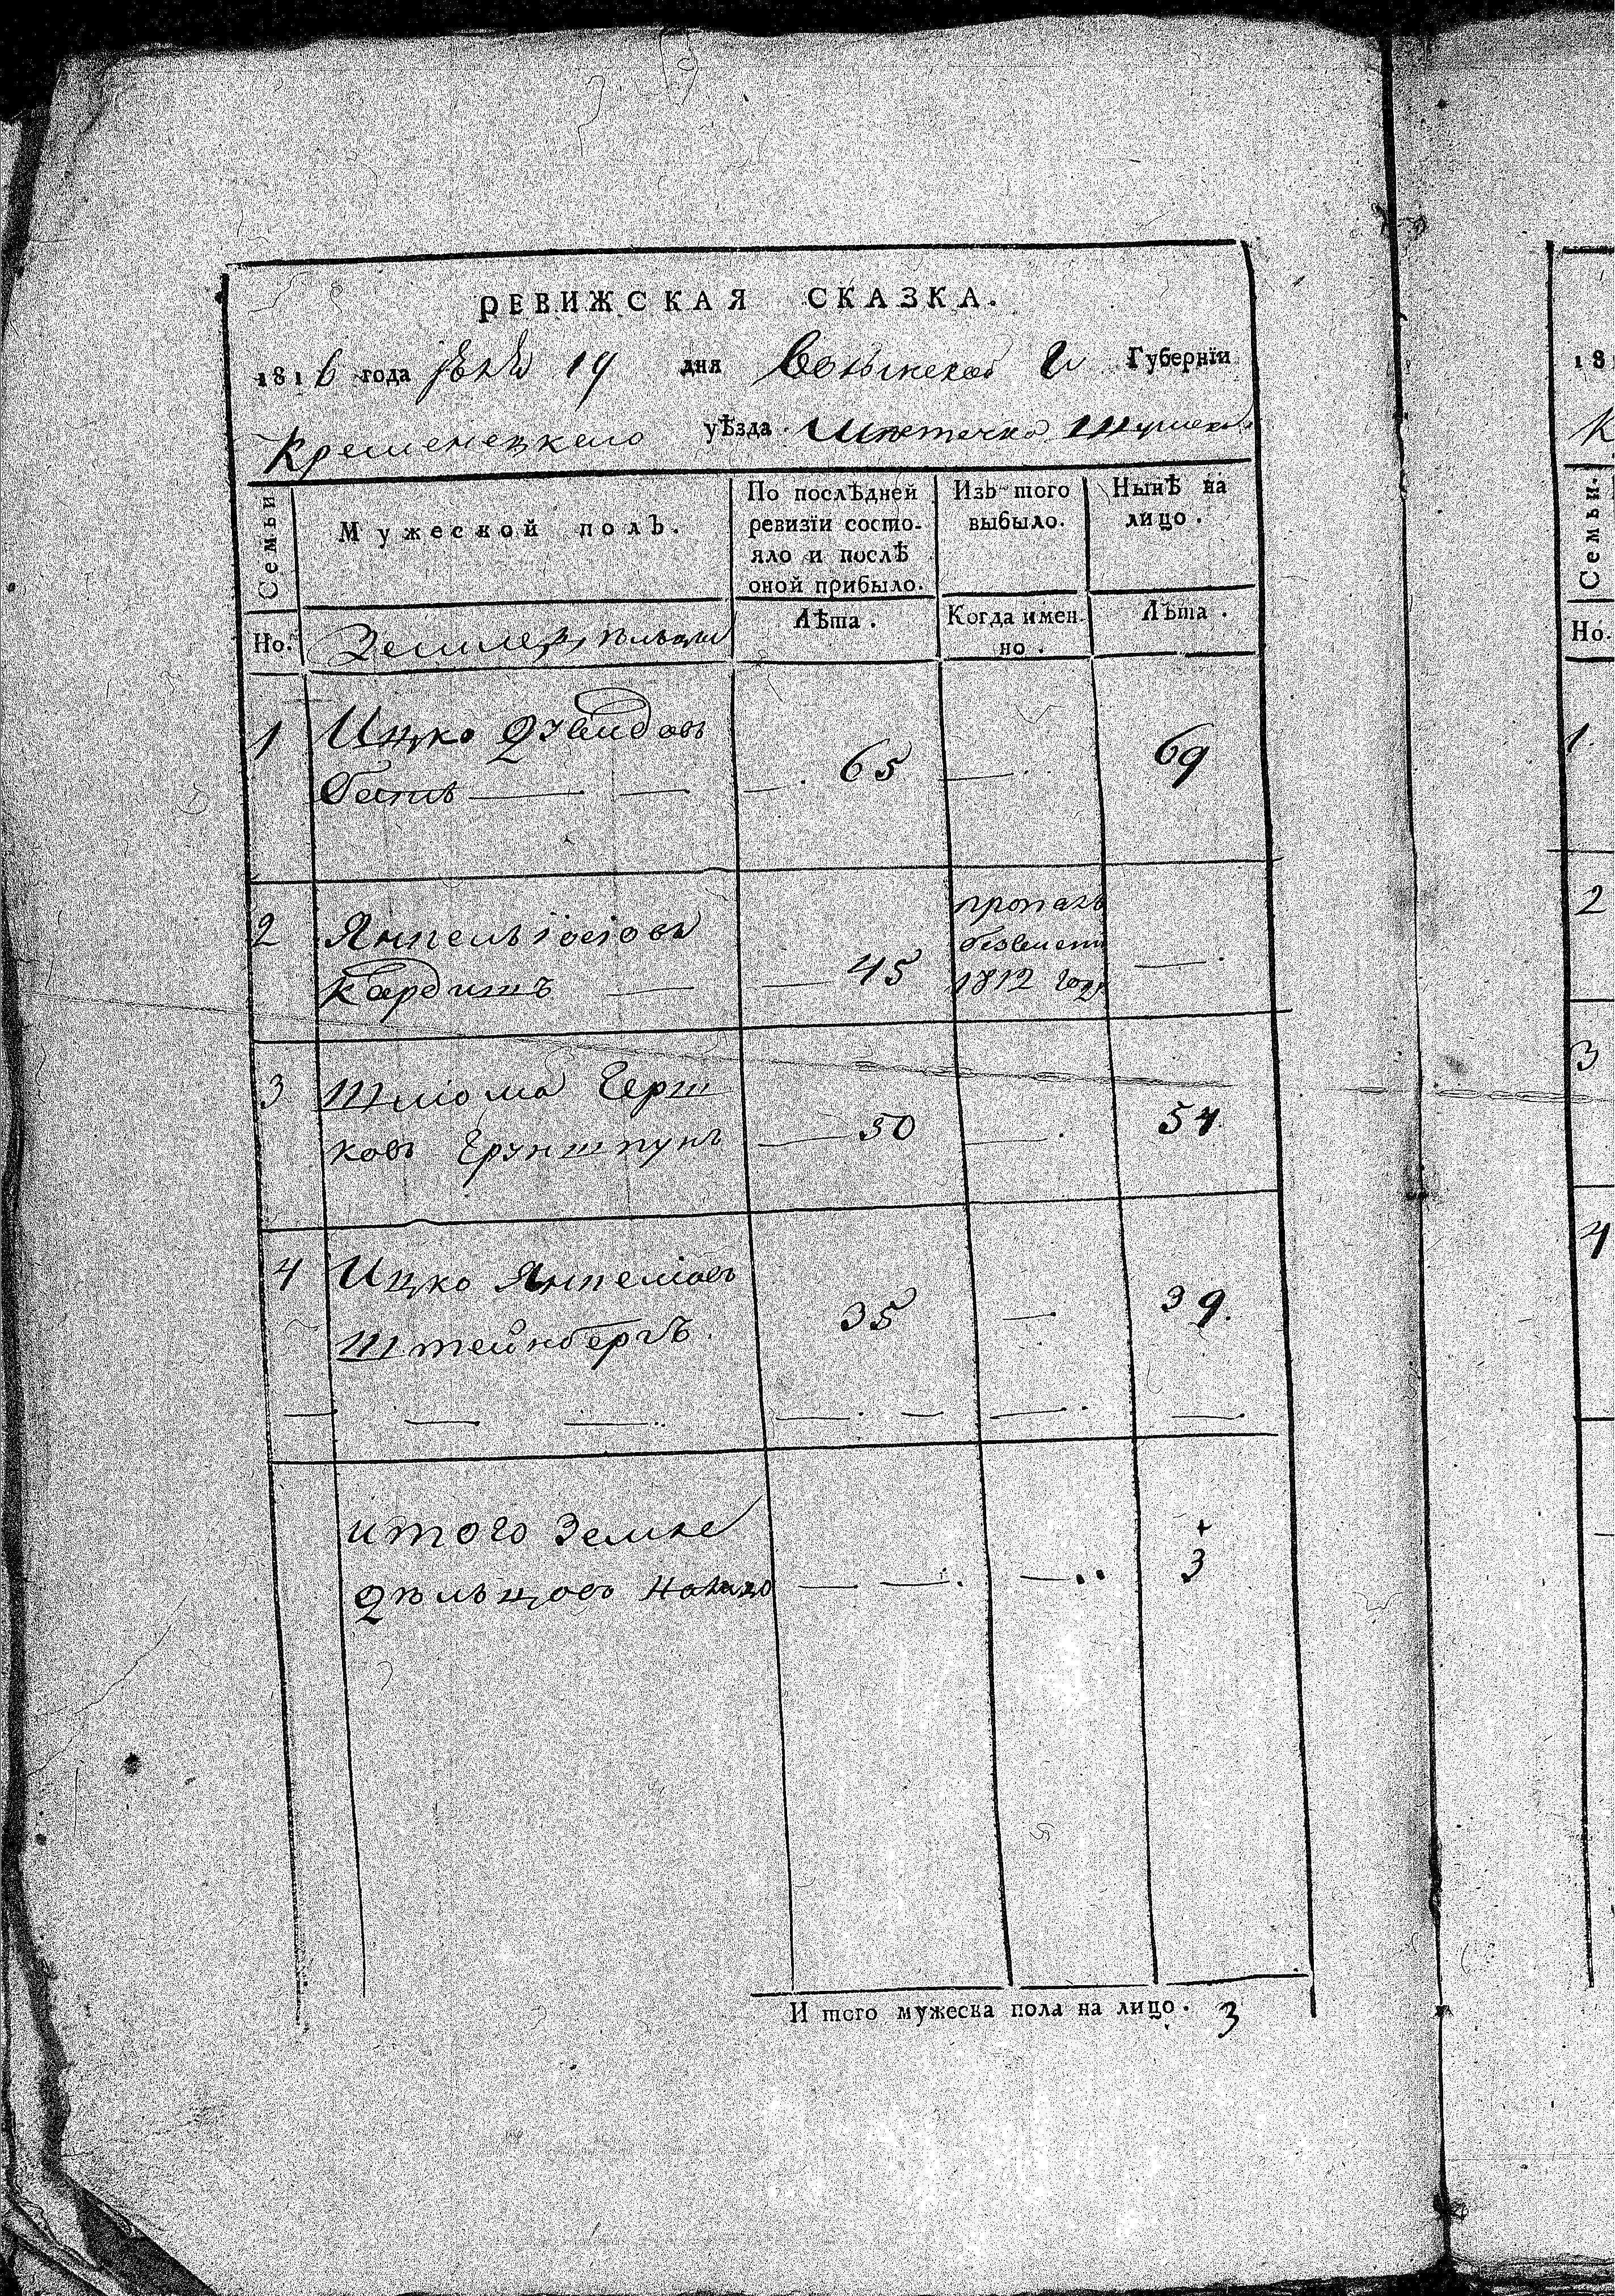 РЕВИЖСКАЯ СКАЗКА.
1816 года 19 дня Волынской Губернїи
Кременецкаго уѣзда Мѣстечка
Семьи
Мужеской полъ.
По послѣдней ревизїи состо-
яло и послѣ
оной прибыло.
Изъ того
выбыло.
Нынѣ на
лицо.
Но.
Земледѣльцы
Лѣта.
Когда имен-
но.
Лѣта.
1 Ицко Давидовъ
65 69
2 Янкель Іосіовъ
Кардишъ 45
пропалъ
безвести
1812 году
3 Шлома Герш
ковъ Груншпунъ 50 54
4 Ицко Янкеліовъ
Штейнбергъ. 35 39.
итого Земле
дѣльцовъ налицо 3
И того мужеска пола на лицо. 3
18
К
Семьи.
Но.
1.
2
3
4